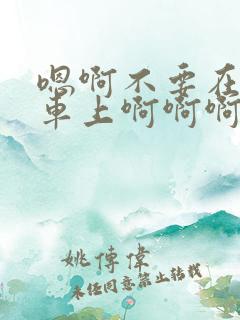 嗯啊不要在
車上啊啊啊
姚傳偉
未经同意禁止转载